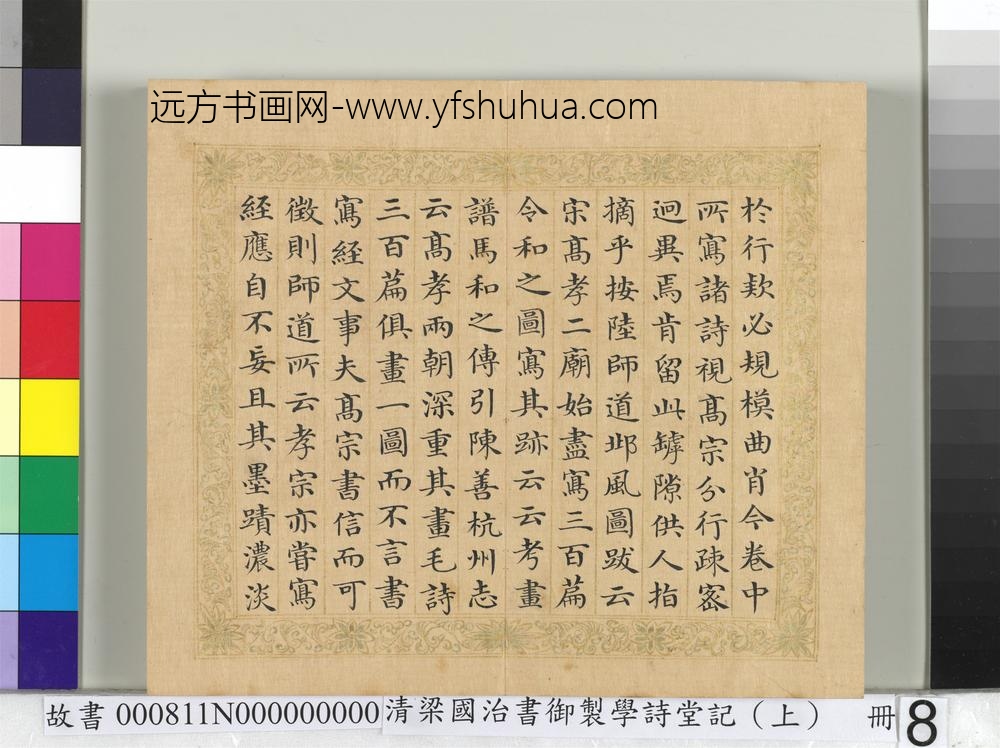 远方书画网-www.yfshuhua.com
於行欵必規模曲肖今卷中
所寫諸詩視髙宗分行疎密
迥異焉肯留此罅隙供人指
摘乎按陸師道邶風圖跋云
宋髙孝二廟始盡寫三百篇
令和之圖寫其跡云云考畫
譜馬和之傳引陳善杭州志
云髙孝兩朝深重其畫毛詩
三百篇俱畫一圖而不言書
寫經文事夫髙宗書信而可
徵則師道所云孝宗亦嘗寫
經應自不妄且其墨蹟濃淡
故書 000811N000000000 清梁國治書御製學詩堂記（上） 冊 8